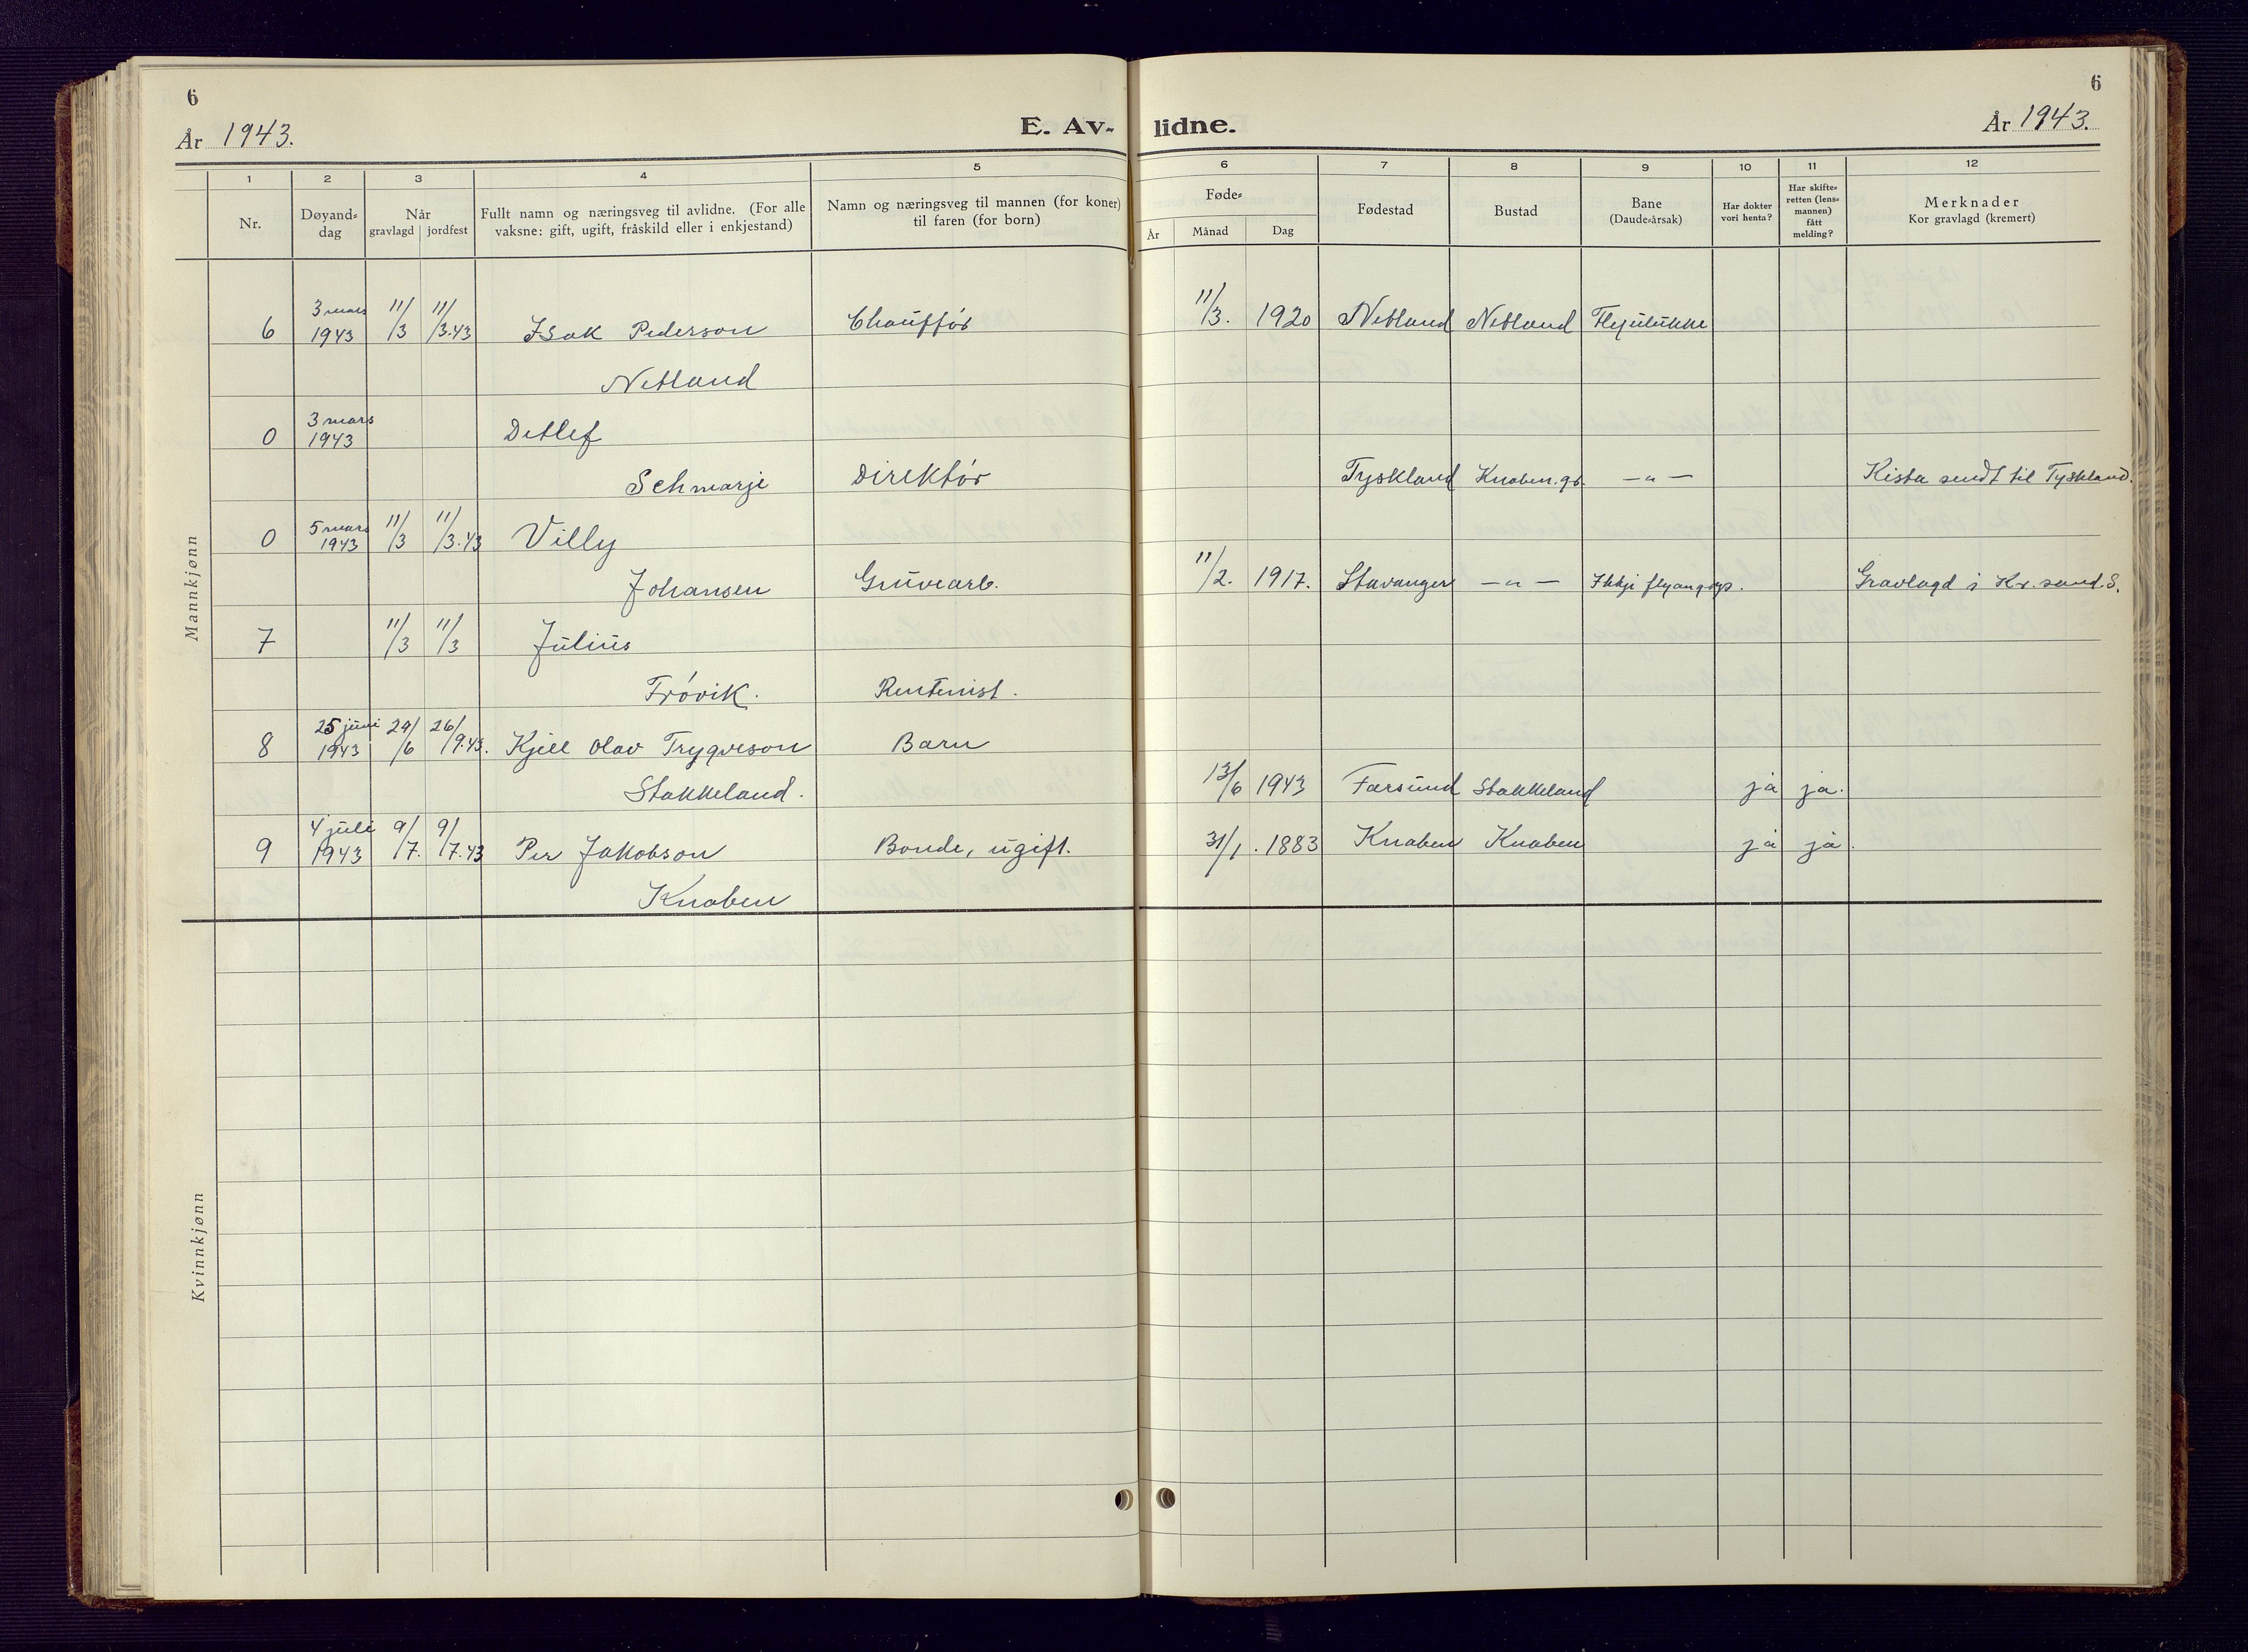 6
6
År 1943.
E. Av-
lidne.
År 1943.
1
2
3
4
5
6
7
8
9
10
11
12
Nr.
Døyand-
dag
Når
gravlagd
jordfest
Fullt namn og næringsveg til avlidne. (For alle
vaksne: gift, ugift, fråskild eller i enkjestand)
Namn og næringsveg til mannen (for koner)
til faren (for born)
Føde-
År
Månad
Dag
Fødestad
Bustad
Bane
(Daude-årsak)
Har dokter
vori henta?
Har skifte-
retten (lens-
mannen)
fått
melding?
Merknader
Kor gravlagd (kremert)
Mannkjønn
6 3 mars 1943 11/3 11/3.43 Isak Pederson Chauffør 11/3. 1920 Netland Netland Flyulukke
Netland
0 3 mars 1943 Detlef
Schmarje Direktør Tyskland Knaben.gr. —"— Kista sendt til Tyskland.
0 5 mars 1943 11/3 11/3.43 Villy
Johansen Gruvearb. 11/2. 1917. Stavanger —"— Gravlagd i Kr.sand.S.
7 11/3 11/3 Julius
Trøvik. Rentenist.
8 25 juni 1943 29/6 26/9.43. Kjell Olav Trygveson Barn
Stakkeland. 13/6 1943 Farsund Stakkeland ja ja.
9 4 juli 1943 9/7. 9/7.43 Per Jakobson Bonde, ugift. 31/1. 1883 Knaben Knaben ja ja.
Knaben
Kvinnkjønn